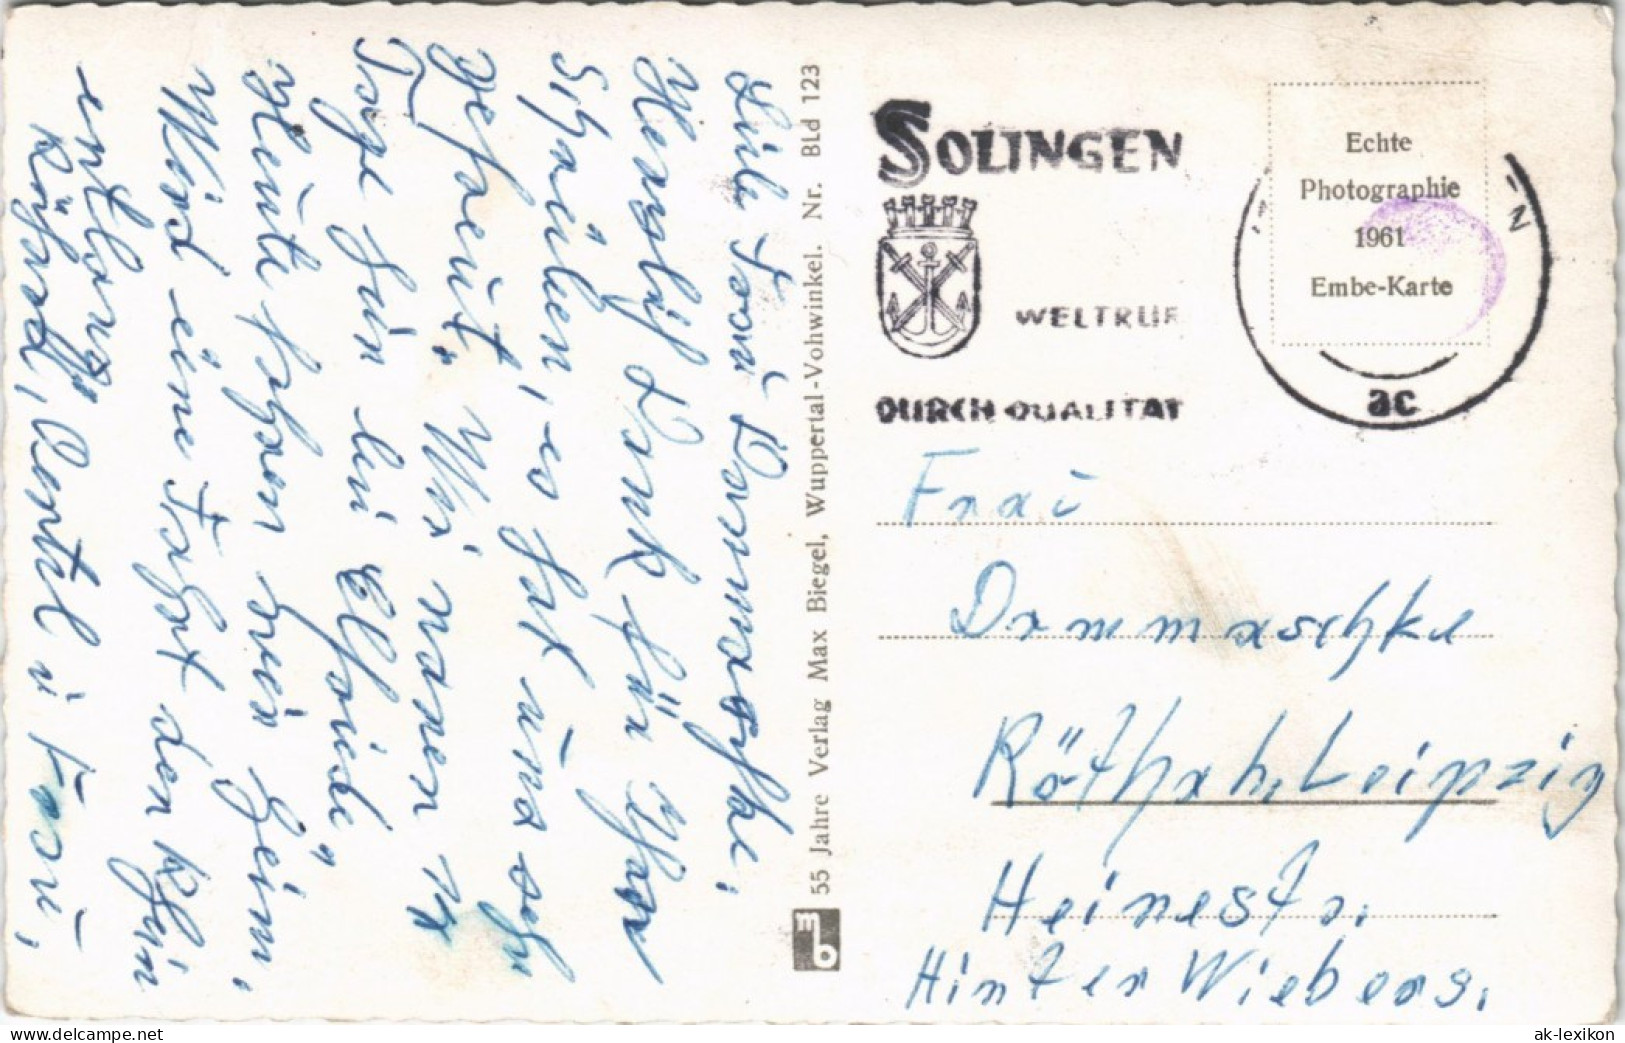 Liebe Frau Dommaschke,
Herzlich Dank für Ihr
Schreiben, es hat uns sehr
gefreut. Wir waren 14
Tage hin bei Elfriede,
Heute fahren wir heim,
Wird eine Fahrt den Rhein
entlang
Richard, u Frau,
55 Jahre Verlag Max Biegel, Wuppertal-Vohwinkel. Nr. BLd 123
mb
SOLINGEN
WELTRUF
DURCH QUALITAT
ac
Echte
Photographie
1961
Embe-Karte
Frau
Dommaschke
Röthah, Leipzig
Heinestr.
Hinter Wiebers.
ak-lexikon.com
ak-lexikon